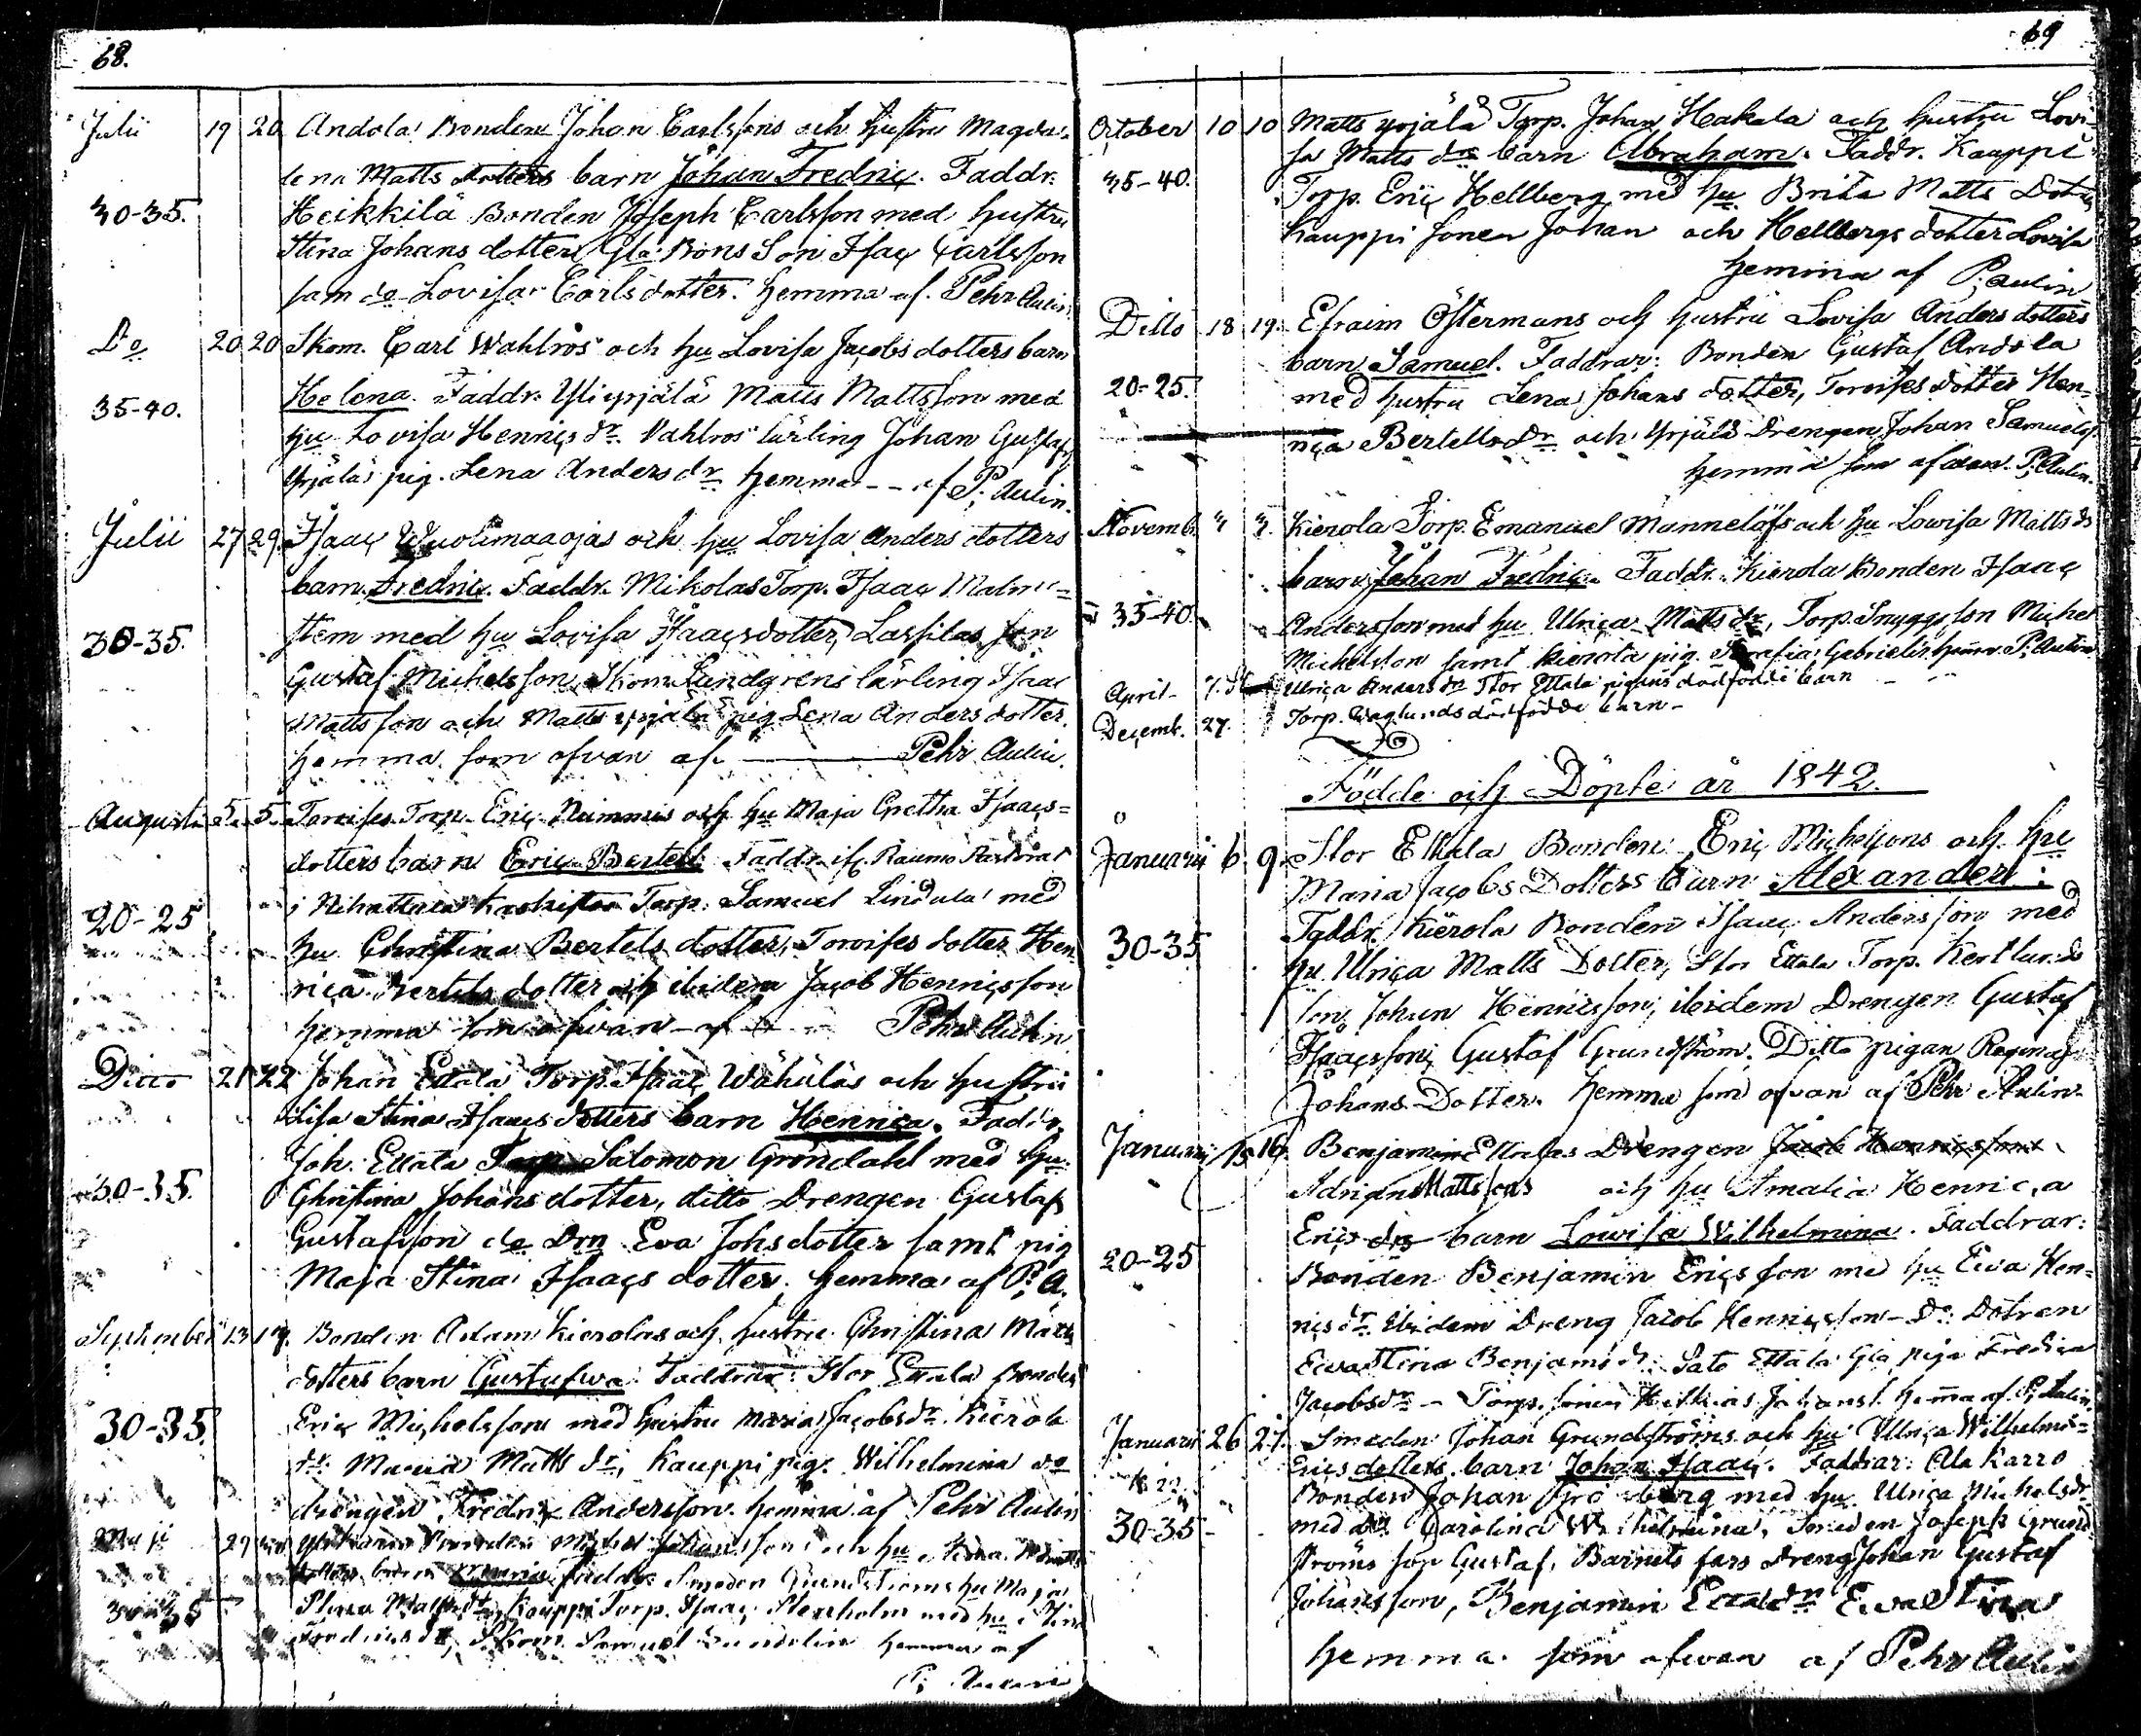 68.
Julii 19 20 Andola Bonden Johan Carlssons och hustru Magda-
lena Matts dotters barn Johan Fredric. Faddr.
30-35. Heikkilä Bonden Joseph Carlsson med hustru
Stina Johans dotter, Gla Bons Son Isac Carlsson
sam de Lovisa Carls dotter. hemma af. Pehr Aulin.
Do 20 20 Skom. Carl Wahlros och hu Lovisa Jacobs dotters barn
35-40. Helena. Faddr. Yliyrjälä Matts Mattsson med
hu Lovisa Henrics dr. Wahlros lärling Johan Gustafs
Yrjälä pig. Lena Anders dr hemma - - af P. Aulin.
Julii 27 29. Isaac Wuolimaaojas och hu Lovisa Anders dotters
barn Fredric. Faddr. Mikolas Torp. Isaac Malm-
30-35. stem med hu Lovisa Isaacsdotter, Lassilas son
Gustaf Michelsson, Skom Lundgrens lärling Isaac
Mattsson och Matts yrjälä pig Lena Anders dotter.
hemma som ofvan af. Pehr Aulin.
Augusti 5. 5. Torvises Torp. Eric Nummis och hu Maja Gretha Isaacs-
dotters barn Eric Bertell. Faddr. if. Raumo
20-25 i Torp. Samuel Lindula med
hu Christina Bertels dotter, Torvises dotter Hen-
rica Bertels dotter och ibidem Jacob Henricsson
hemma som ofvan - af Pehr Aulin
Ditto 21 22 Johan Ettala Torp. Isaac Wähäläs och hustru
Lisa Stina Isaacs dotters barn Henrica. Faddr.
30-35. Joh. Ettala Torp. Salomon Gröndahl med hu
Christina Johans dotter, ditto Drengen Gustaf
Gustafsson de Drn Eva Johsdotter samt pig
Maja Stina Isaacs dotter. hemma af P. A.
September 13 17. Bonden Adam Kierolas och hustru Christina Matts
dotters barn Gustafwa. Faddrar: Stor Ettala Bonden
30-35. Eric Michelsson med hustru Maria Jacobsdr. Kierola
dr Maria Matts dr, Kauppi pig. Wilhelmina
drengen Fredric Andersson. hemma af Pehr Aulin
Maji 29 Bonden Michel Johansson och hu Stina
dotters barn Henric Faddr. Smeden Grundströms hu Maja
30-35 Stina Matts dr, Kauppi Torp. Isaac Stenholm med hu Stina
Fredricsdr, Skom. Samuel Sundelin hemma af
P. Aulin
69
October 10 10 Matts yrjälä Torp. Johan Hakala och hustru Lovi-
sa Matts drs barn Abraham. Faddr. Kauppi
35-40. Torp. Eric Hellberg med hu Brita Matts Dotter
Kauppi sonen Johan och Hellbergs dotter Lovisa
hemma af P. Aulin
Ditto 18 19. Efraim Östermans och hustru Lovisa Anders dotters
barn Samuel. Faddrar: Bonden Gustaf Andola
20-25. med hustru Lena Johans dotter, Torvises dotter Hen-
rica Bertells dr och Yrjälä Drengen Johan Samuelss.
hemma som ofwan. P. Aulin.
Novemb. Kierola Torp. Emanuel Mannelöfs och hu Lowisa Matts ds
barn Johan Fredric. Faddr. Kierola Bonden Isaac
35-40. Andersson med hu Ulrica Matts dr, Torp. Snyggs son Michel
Michelsson samt Kierola pig. Gabrielsd. hemma P. Aulin
April Ulrica Anders dr Stor Ettala pigans dödfödde barn
Decemb. 27. Torp. Waglunds dödfödde barn -
Födde och Döpte år 1842.
Januarii 6 9. Stor Ettala Bonden Eric Michelsons och hu
Maria Jacobs Dotters barn Alexander:
30-35 Faddr. Kierola Bonden Isaac Andersson med
hu Ulrica Matts Dotter, Stor Ettala Torp. Kertlunds
son Johan Henricsson; ibidem Drengen Gustaf
Isaacsson; Gustaf Grundström. Ditto pigan Regina
Johans Dotter. hemma som ofvan af Pehr Aulin
Januarii 15 16. Benjamin Ettalas Drengen Jacob Henricssons
Adrian Mattssons och hu Amalia Henrica
Erics drs barn Lowisa Wilhelmina. Faddrar:
20-25 Bonden Benjamin Ericsson med hu Ewa Hen-
rics dr Ibidem Dreng Jacob Henricsson - Do. Dotren
Ewa Stina Benjamsd: Sato Ettala Gla piga Fredica
Jacobsdr - Torp. sonen Johans s. hemma af P. Aulin.
Januarii 26 27. Smeden Johan Grundströms och hu Ulrica Wilhelmi-
Erics dotters barn Johan Isaac. Faddrar: Ala Karro
30-35 Bonden Johan med hu Ulrica Michelsdr
med dr Carolina Wilhelmina, Smeden Joseph Grund-
ströms son Gustaf, Barnets fars Dreng Johan Gustaf
Johansson, Benjamin Ettala dr Ewa Stina
hemma som ofwan af Pehr Aulin